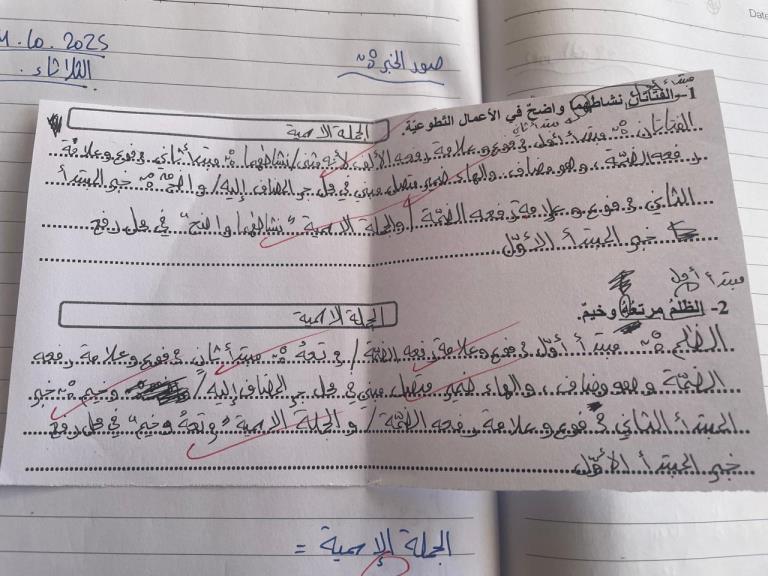 .10.2025
الثلاثاء
صور الخبر
Date
مبتدأ أول
1- الفتاتان نشاطهما واضح في الأعمال التطوعيّة.
مبتدأ ثانٍ
الجملة الاسمية
الفتاتان: مبتدأ أول مرفوع وعلامة رفعه الألف لأنه مثنى/ نشاطهما: مبتدأ ثاني مرفوع وعلامة
رفعه الضمّة، وهو مضاف، والهاء ضمير متصل مبني في محل جر المضاف إليه/ واضح: خبر المبتدأ
الثاني مرفوع وعلامة رفعه الضمّة/ والجملة الاسمية "نشاطهما واضح" في محل رفع
خبر المبتدأ الأوّل
مبتدأ أول
2- الظلمُ مرتعُهُ وخيمٌ.
الجملة الاسمية
الظلم: مبتدأ أوّل مرفوع وعلامة رفعه الضمّة/ مرتعهُ: مبتدأ ثاني مرفوع وعلامة رفعه
الضمّة وهو مضاف، والهاء ضمير متصل مبني في محل جر المضاف إليه/ وخيم: خبر
المبتدأ الثاني مرفوع وعلامة رفعه الضمّة/ والجملة الاسمية "مرتعهُ وخيم" في محل رفع
خبر المبتدأ الأوّل
الجملة الإسمية =